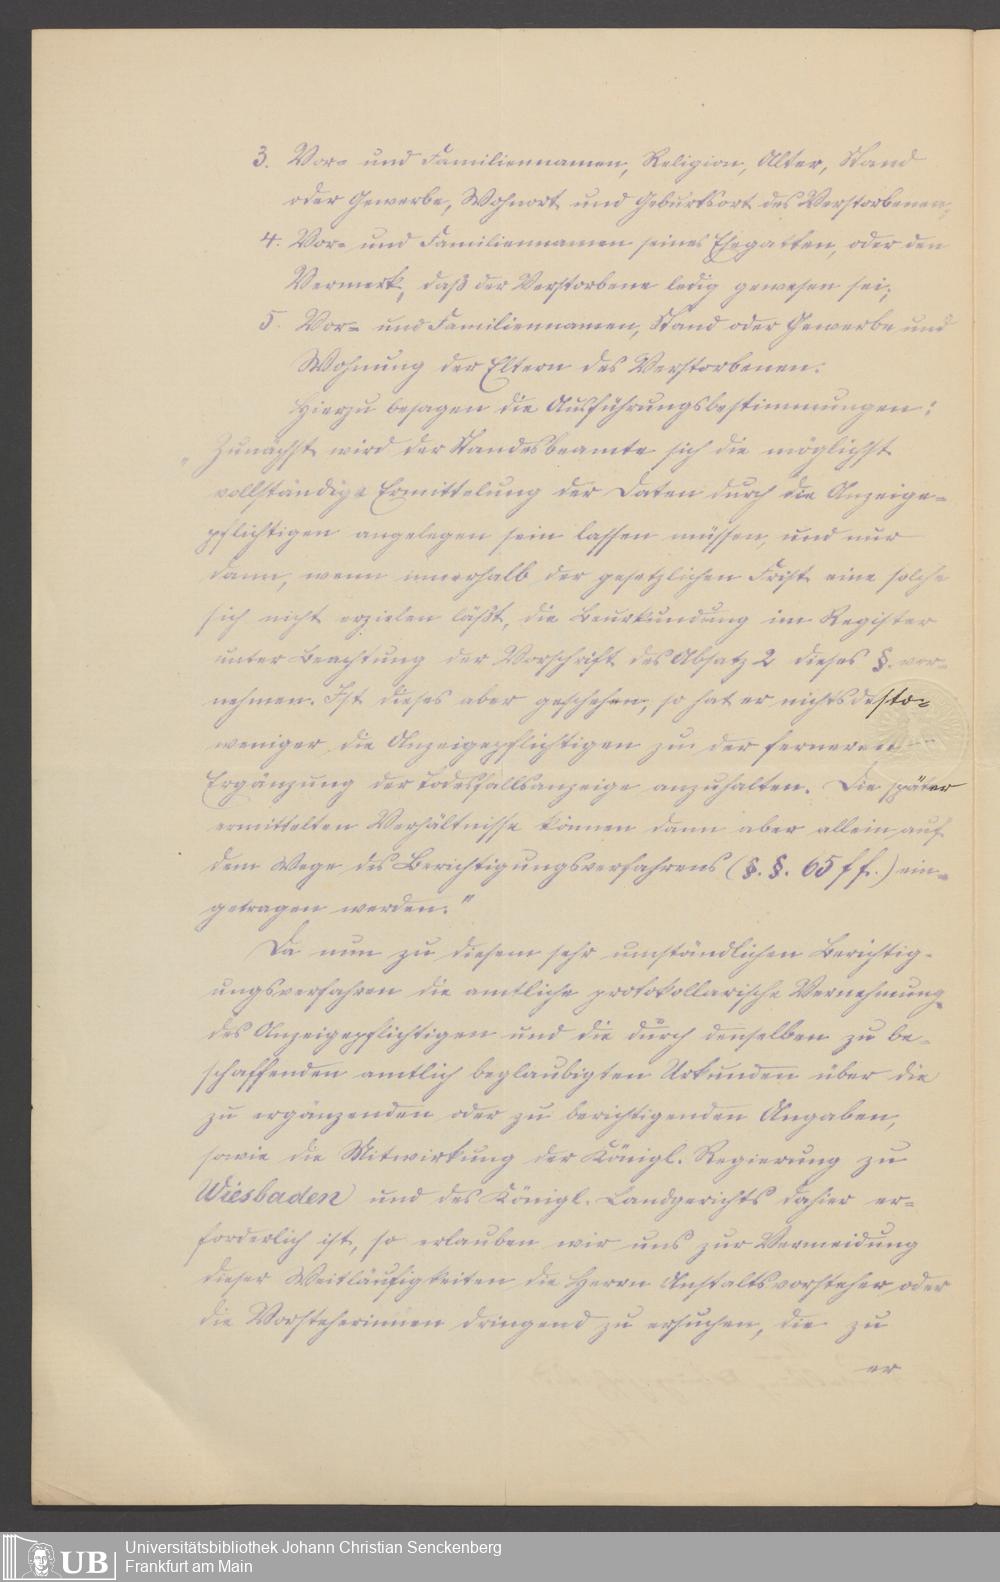 3. Vor- und Familiennamen, Religion, Alter, Stand
oder Gewerbe, Wohnort und Geburtsort des Verstorbenen;
4. Vor- und Familiennamen seines Ehegatten, oder den
Vermerk, daß der Verstorbene ledig gewesen sei;
5. Vor- und Familiennamen, Stand oder Gewerbe und
Wohnung der Eltern des Verstorbenen.
Hierzu besagen die Ausführungsbestimmungen:
„Zunächst wird der Standesbeamte sich die möglichst
vollständige Ermittelung der Daten durch die Anzeige-
pflichtigen angelegen sein lassen müssen, und nur
dann, wenn innerhalb der gesetzlichen Frist eine solche
sich nicht erzielen läßt, die Beurkundung im Register
unter Beachtung der Vorschrift des Absatz 2 dieses §. vor-
nehmen. Ist dieses aber geschehen, so hat er nichtsdesto-
weniger die Anzeigepflichtigen zu der ferneren
Ergänzung der Todesfallsanzeige anzuhalten. Die später
ermittelten Verhältnisse können dann aber allein auf
dem Wege des Berichtigungsverfahrens (§.§. 65 ff.) ein-
getragen werden."
Da nun zu diesem sehr umständlichen Berichtig-
ungsverfahren die amtliche protokollarische Vernehmung
des Anzeigepflichtigen und die durch denselben zu be-
schaffenden amtlich beglaubigten Urkunden über die
zu ergänzenden oder zu berichtigenden Angaben,
sowie die Mitwirkung der Königl. Regierung zu
Wiesbaden und des Königl. Landgerichts dahier er-
forderlich ist, so erlauben wir uns zur Vermeidung
dieser Weitläufigkeiten die Herrn Anstaltsvorsteher oder
die Vorsteherinnen dringend zu ersuchen, die zu
er
UB
Universitätsbibliothek Johann Christian Senckenberg
Frankfurt am Main